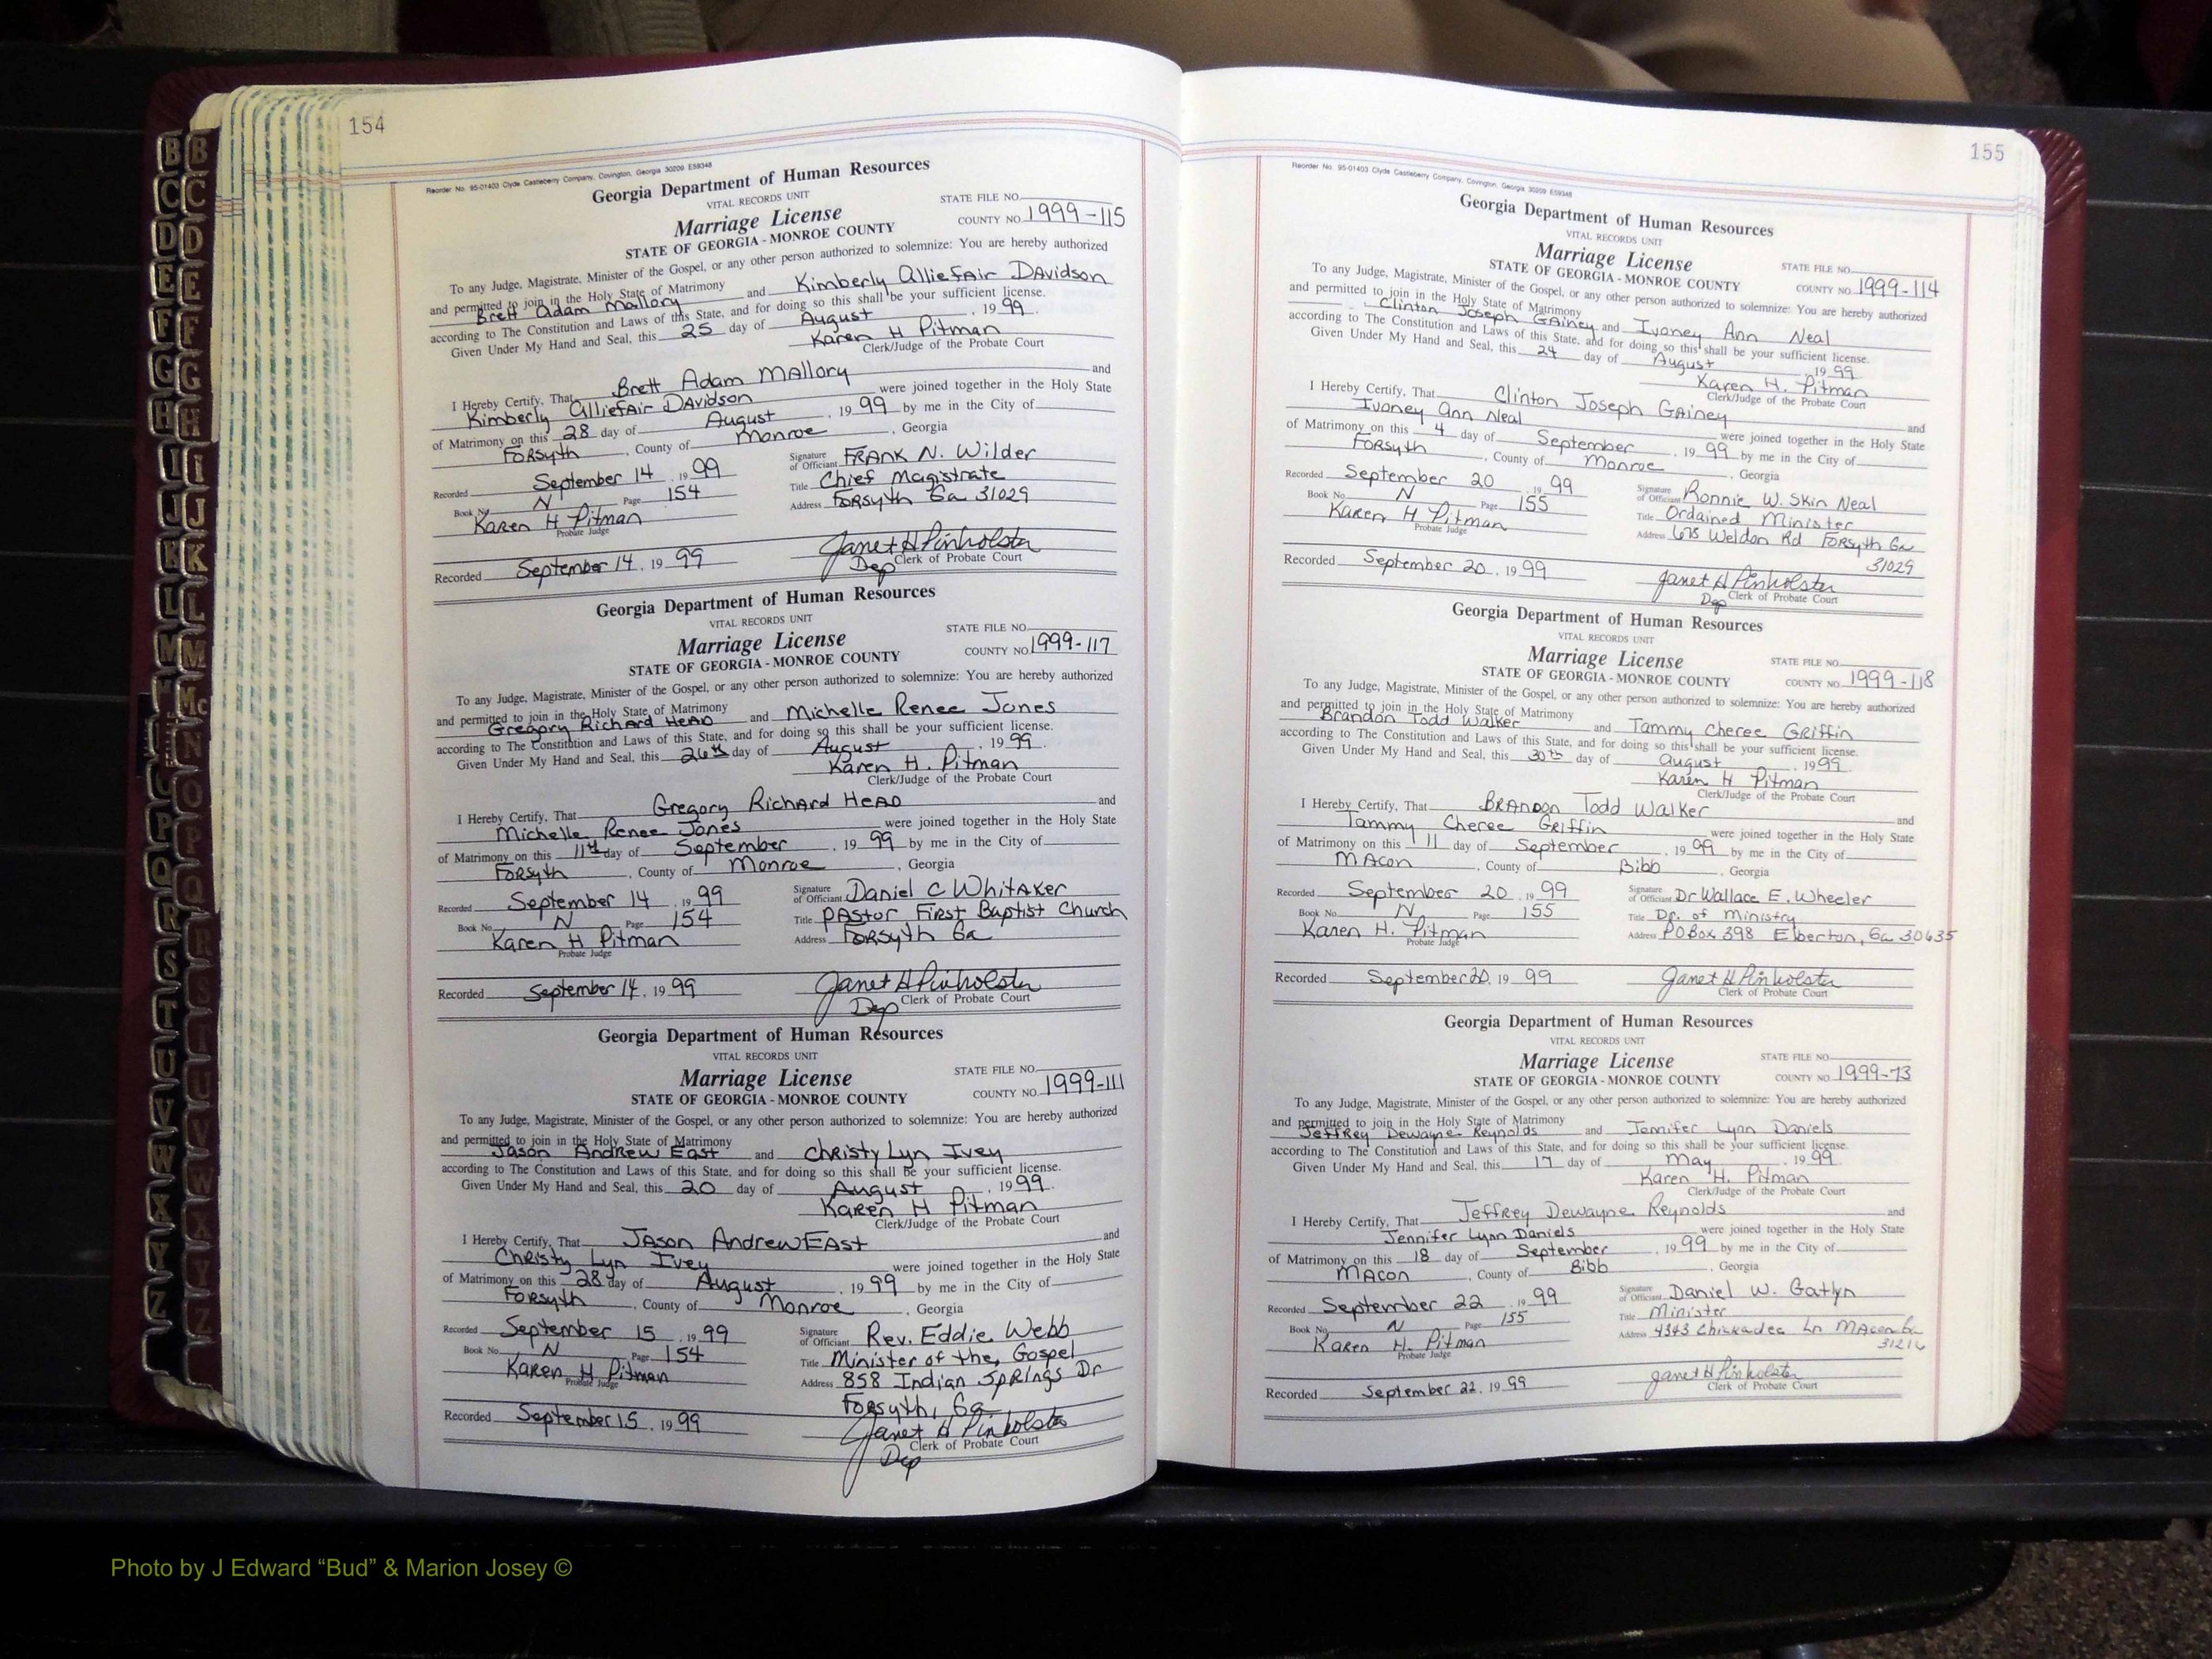 154
Reorder No. 95-01403 Clyde Castleberry Company, Covington, Georgia 30209 E59348
Georgia Department of Human Resources
VITAL RECORDS UNIT
Marriage License
STATE OF GEORGIA - MONROE COUNTY
STATE FILE NO.
COUNTY NO. 1999-115
To any Judge, Magistrate, Minister of the Gospel, or any other person authorized to solemnize: You are hereby authorized
and permitted to join in the Holy State of Matrimony
Brett Adam Mallory and Kimberly Alliefair Davidson
according to The Constitution and Laws of this State, and for doing so this shall be your sufficient license.
Given Under My Hand and Seal, this 25 day of August, 1999.
Karen H Pitman
Clerk/Judge of the Probate Court
I Hereby Certify, That Brett Adam Mallory and
Kimberly Alliefair Davidson were joined together in the Holy State
of Matrimony on this 28 day of August, 1999 by me in the City of
Forsyth, County of Monroe, Georgia
Recorded September 14, 1999
Book No. N Page 154
Karen H Pitman
Probate Judge
Signature of Officiant FRANK N. Wilder
Title Chief Magistrate
Address Forsyth Ga 31029
Recorded September 14, 1999
Janet H Pinholster
Dep Clerk of Probate Court
Georgia Department of Human Resources
VITAL RECORDS UNIT
Marriage License
STATE OF GEORGIA - MONROE COUNTY
STATE FILE NO.
COUNTY NO. 1999-117
To any Judge, Magistrate, Minister of the Gospel, or any other person authorized to solemnize: You are hereby authorized
and permitted to join in the Holy State of Matrimony
Gregory Richard Head and Michelle Renee Jones
according to The Constitution and Laws of this State, and for doing so this shall be your sufficient license.
Given Under My Hand and Seal, this 26th day of August, 1999.
Karen H. Pitman
Clerk/Judge of the Probate Court
I Hereby Certify, That Gregory Richard Head and
Michelle Renee Jones were joined together in the Holy State
of Matrimony on this 11th day of September, 1999 by me in the City of
Forsyth, County of Monroe, Georgia
Recorded September 14, 1999
Book No. N Page 154
Karen H Pitman
Probate Judge
Signature of Officiant Daniel C Whitaker
Title Pastor, First Baptist Church
Address Forsyth Ga
Recorded September 14, 1999
Janet H Pinholster
Dep Clerk of Probate Court
Georgia Department of Human Resources
VITAL RECORDS UNIT
Marriage License
STATE OF GEORGIA - MONROE COUNTY
STATE FILE NO.
COUNTY NO. 1999-111
To any Judge, Magistrate, Minister of the Gospel, or any other person authorized to solemnize: You are hereby authorized
and permitted to join in the Holy State of Matrimony
Jason Andrew East and Christy Lyn Ivey
according to The Constitution and Laws of this State, and for doing so this shall be your sufficient license.
Given Under My Hand and Seal, this 20 day of August, 1999.
Karen H Pitman
Clerk/Judge of the Probate Court
I Hereby Certify, That Jason Andrew East and
Christy Lyn Ivey were joined together in the Holy State
of Matrimony on this 28 day of August, 1999 by me in the City of
Forsyth, County of Monroe, Georgia
Recorded September 15, 1999
Book No. N Page 154
Karen H Pitman
Probate Judge
Signature of Officiant Rev. Eddie Webb
Title Minister of the Gospel
Address 858 Indian Springs Dr
Forsyth, Ga
Recorded September 15, 1999
Janet H Pinholster
Dep Clerk of Probate Court
155
Reorder No. 95-01403 Clyde Castleberry Company, Covington, Georgia 30209 E59348
Georgia Department of Human Resources
VITAL RECORDS UNIT
Marriage License
STATE OF GEORGIA - MONROE COUNTY
STATE FILE NO.
COUNTY NO. 1999-114
To any Judge, Magistrate, Minister of the Gospel, or any other person authorized to solemnize: You are hereby authorized
and permitted to join in the Holy State of Matrimony
Clinton Joseph Gainey and Ivaney Ann Neal
according to The Constitution and Laws of this State, and for doing so this shall be your sufficient license.
Given Under My Hand and Seal, this 24 day of August, 1999.
Karen H. Pitman
Clerk/Judge of the Probate Court
I Hereby Certify, That Clinton Joseph Gainey and
Ivaney Ann Neal were joined together in the Holy State
of Matrimony on this 4 day of September, 1999 by me in the City of
Forsyth, County of Monroe, Georgia
Recorded September 20, 1999
Book No. N Page 155
Karen H Pitman
Probate Judge
Signature of Officiant Ronnie W. Skin Neal
Title Ordained Minister
Address 678 Weldon Rd Forsyth Ga
31029
Recorded September 20, 1999
Janet H Pinholster
Dep Clerk of Probate Court
Georgia Department of Human Resources
VITAL RECORDS UNIT
Marriage License
STATE OF GEORGIA - MONROE COUNTY
STATE FILE NO.
COUNTY NO. 1999-118
To any Judge, Magistrate, Minister of the Gospel, or any other person authorized to solemnize: You are hereby authorized
and permitted to join in the Holy State of Matrimony
Brandon Todd Walker and Tammy Cheree Griffin
according to The Constitution and Laws of this State, and for doing so this shall be your sufficient license.
Given Under My Hand and Seal, this 30th day of August, 1999.
Karen H Pitman
Clerk/Judge of the Probate Court
I Hereby Certify, That Brandon Todd Walker and
Tammy Cheree Griffin were joined together in the Holy State
of Matrimony on this 11 day of September, 1999 by me in the City of
Macon, County of Bibb, Georgia
Recorded September 20, 1999
Book No. N Page 155
Karen H. Pitman
Probate Judge
Signature of Officiant Dr Wallace E. Wheeler
Title Dr. of Ministry
Address PO Box 398 Elberton, Ga 30635
Recorded September 20, 1999
Janet H Pinholster
Clerk of Probate Court
Georgia Department of Human Resources
VITAL RECORDS UNIT
Marriage License
STATE OF GEORGIA - MONROE COUNTY
STATE FILE NO.
COUNTY NO. 1999-73
To any Judge, Magistrate, Minister of the Gospel, or any other person authorized to solemnize: You are hereby authorized
and permitted to join in the Holy State of Matrimony
Jeffrey Dewayne Reynolds and Jennifer Lynn Daniels
according to The Constitution and Laws of this State, and for doing so this shall be your sufficient license.
Given Under My Hand and Seal, this 17 day of May, 1999.
Karen H. Pitman
Clerk/Judge of the Probate Court
I Hereby Certify, That Jeffrey Dewayne Reynolds and
Jennifer Lynn Daniels were joined together in the Holy State
of Matrimony on this 18 day of September, 1999 by me in the City of
Macon, County of Bibb, Georgia
Recorded September 22, 1999
Book No. N Page 155
Karen H. Pitman
Probate Judge
Signature of Officiant Daniel W. Gatlyn
Title Minister
Address 4343 Chickadee Ln Macon Ga
31216
Recorded September 22, 1999
Janet H Pinholster
Clerk of Probate Court
Photo by J Edward “Bud” & Marion Josey ©